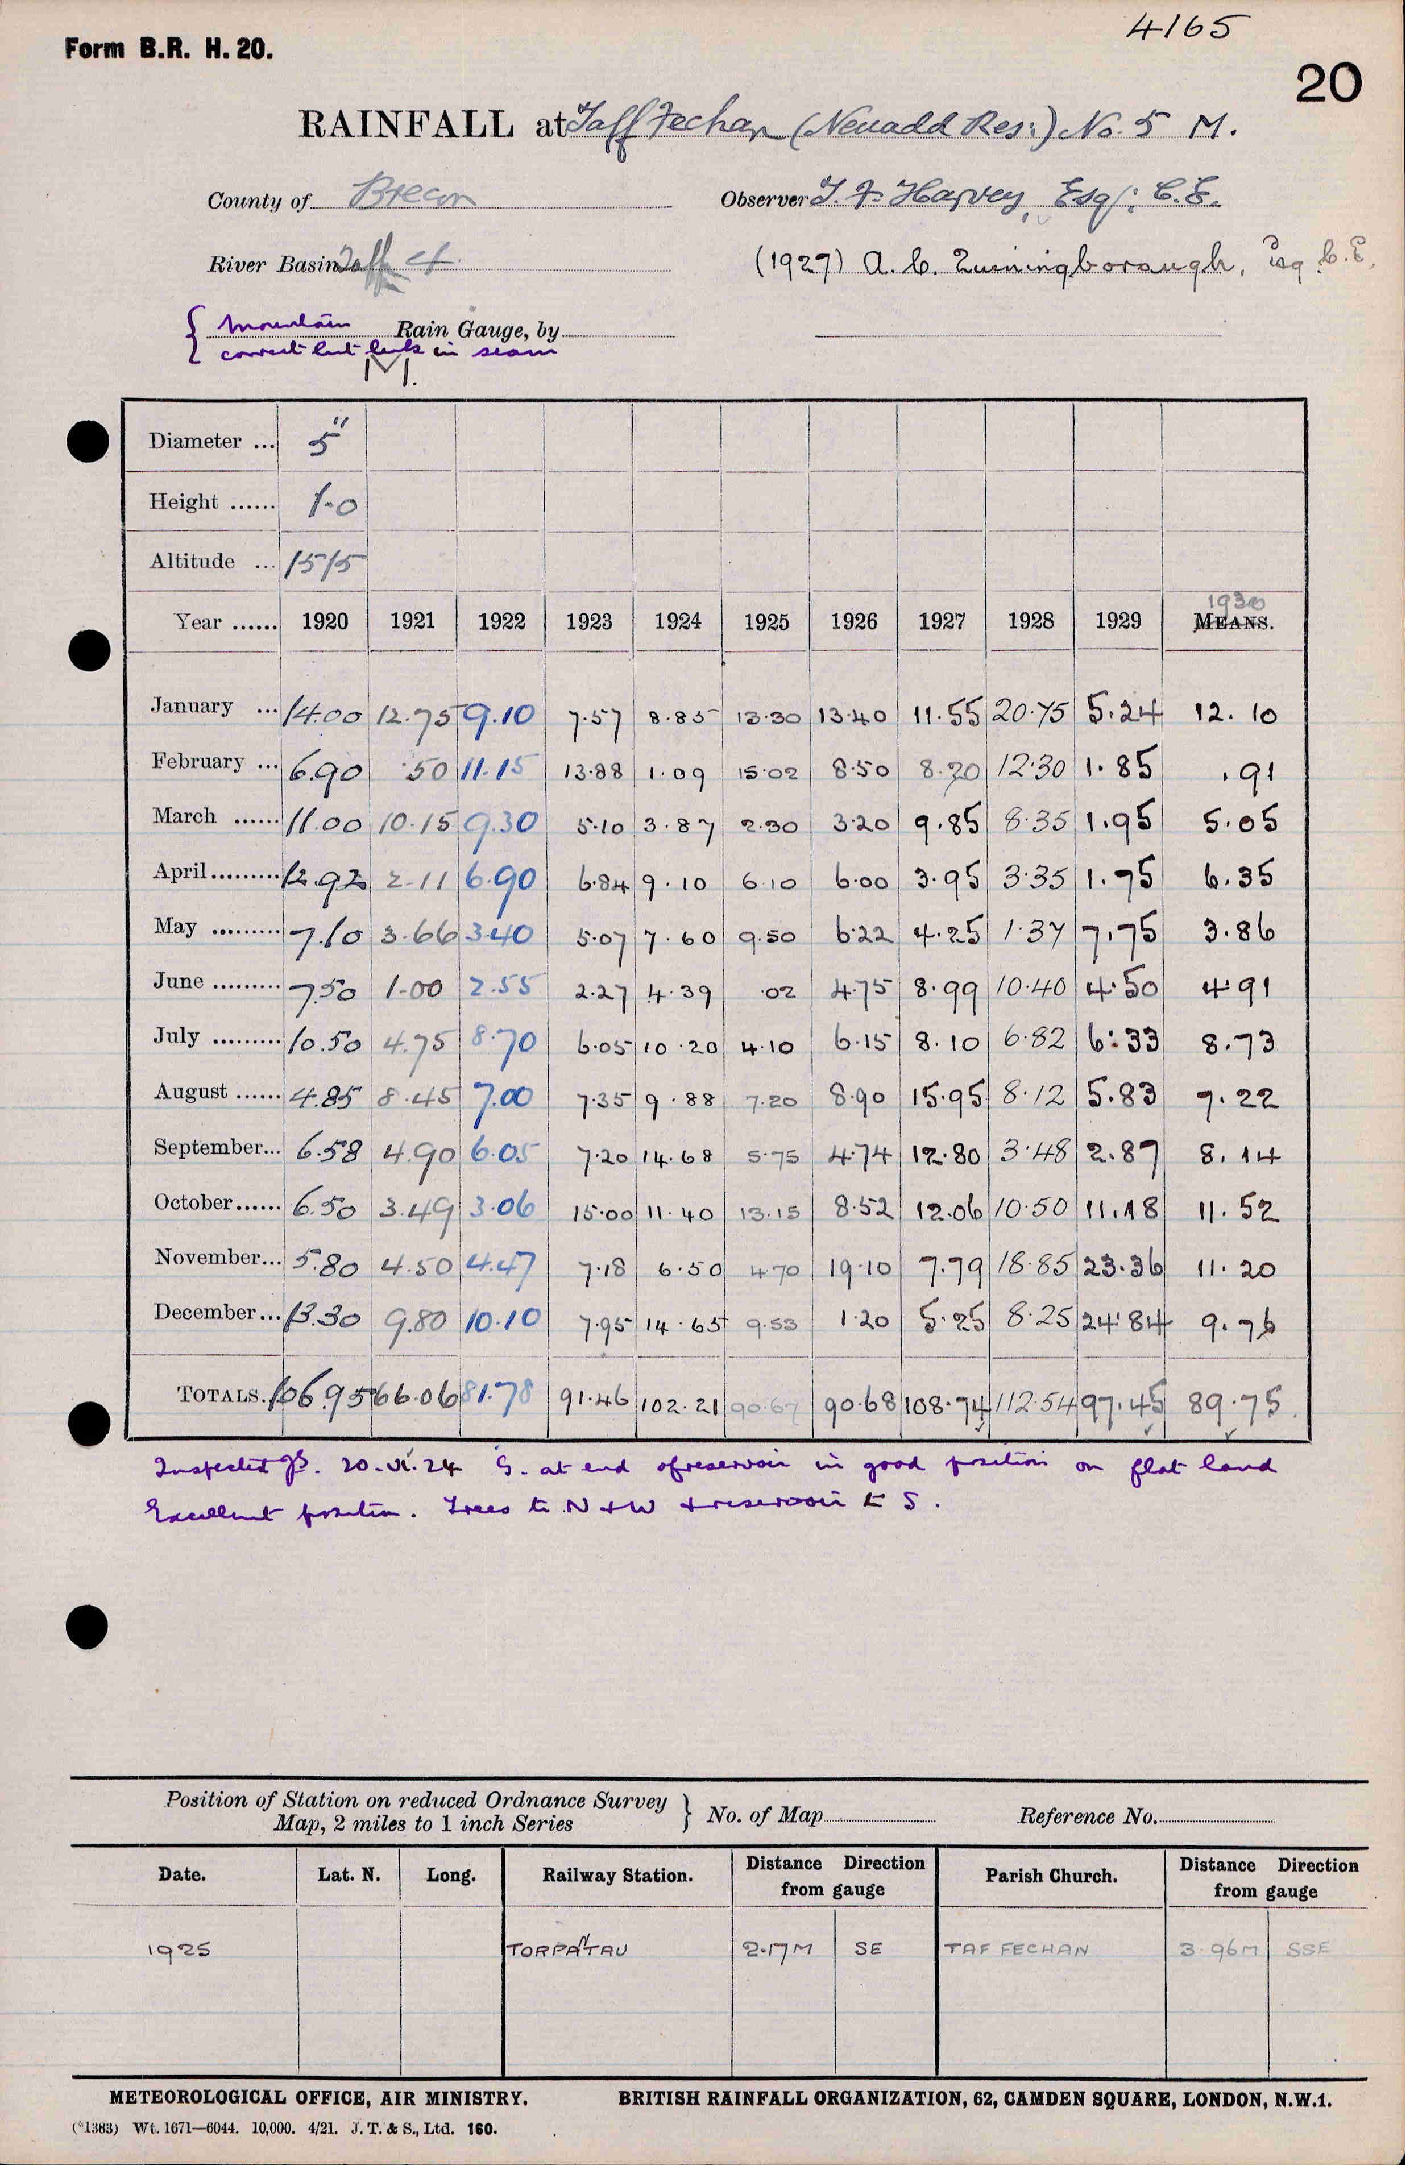 4165
Form B.R. H. 20.
20
RAINFALL at Taff Fechan (Neuadd Res:) No. 5 M.
County of Brecon Observer T. F. Harvey, Esq: C.E.
River Basin Taff 4 (1927) A. C. Esq. C.E.
{ Mountain Rain Gauge, by
correct but leaks in seam
M.
Diameter ... 5"
Height ...... 1-0
Altitude ... 1515
Year ...... 1920 1921 1922 1923 1924 1925 1926 1927 1928 1929 1930 MEANS.
January ... 14.00 12.75 9.10 7.57 8.85 13.30 13.40 11.55 20.75 5.24 12.10
February ... 6.90 .50 11.15 13.88 1.09 15.02 8.50 8.70 12.30 1.85 .91
March ...... 11.00 10.15 9.30 5.10 3.87 2.30 3.20 9.85 8.35 1.95 5.05
April ......... 12.92 2.11 6.90 6.84 9.10 6.10 6.00 3.95 3.35 1.75 6.35
May ......... 7.10 3.66 3.40 5.07 7.60 9.50 6.22 4.25 1.37 7.75 3.86
June ......... 7.50 1.00 2.55 2.27 4.39 .02 4.75 8.99 10.40 4.50 4.91
July ......... 10.50 4.75 8.70 6.05 10.20 4.10 6.15 8.10 6.82 6.33 8.73
August ...... 4.85 8.45 7.00 7.35 9.88 7.20 8.90 15.95 8.12 5.83 7.22
September... 6.58 4.90 6.05 7.20 14.68 5.75 4.74 12.80 3.48 2.87 8.14
October ...... 6.50 3.49 3.06 15.00 11.40 13.15 8.52 12.06 10.50 11.18 11.52
November... 5.80 4.50 4.47 7.18 6.50 4.70 19.10 7.79 18.85 23.36 11.20
December ... 13.30 9.80 10.10 7.95 14.65 9.53 1.20 5.25 8.25 24.84 9.76
TOTALS. 106.95 66.06 81.78 91.46 102.21 90.67 90.68 108.74 112.54 97.45 89.75
Inspected 20.VI.24 G. at end of reservoir in good position on flat land
Excellent position. Trees to N + W + reservoir to S.
Position of Station on reduced Ordnance Survey
Map, 2 miles to 1 inch Series } No. of Map Reference No.
Date. Lat. N. Long. Railway Station. Distance Direction from gauge Parish Church. Distance Direction from gauge
1925 TORPANTAU 2.17M SE TAF FECHAN 3.96M SSE
METEOROLOGICAL OFFICE, AIR MINISTRY. BRITISH RAINFALL ORGANIZATION, 62, CAMDEN SQUARE, LONDON, N.W.1.
(*1383) Wt. 1671—6044. 10,000. 4/21. J. T. & S., Ltd. 160.